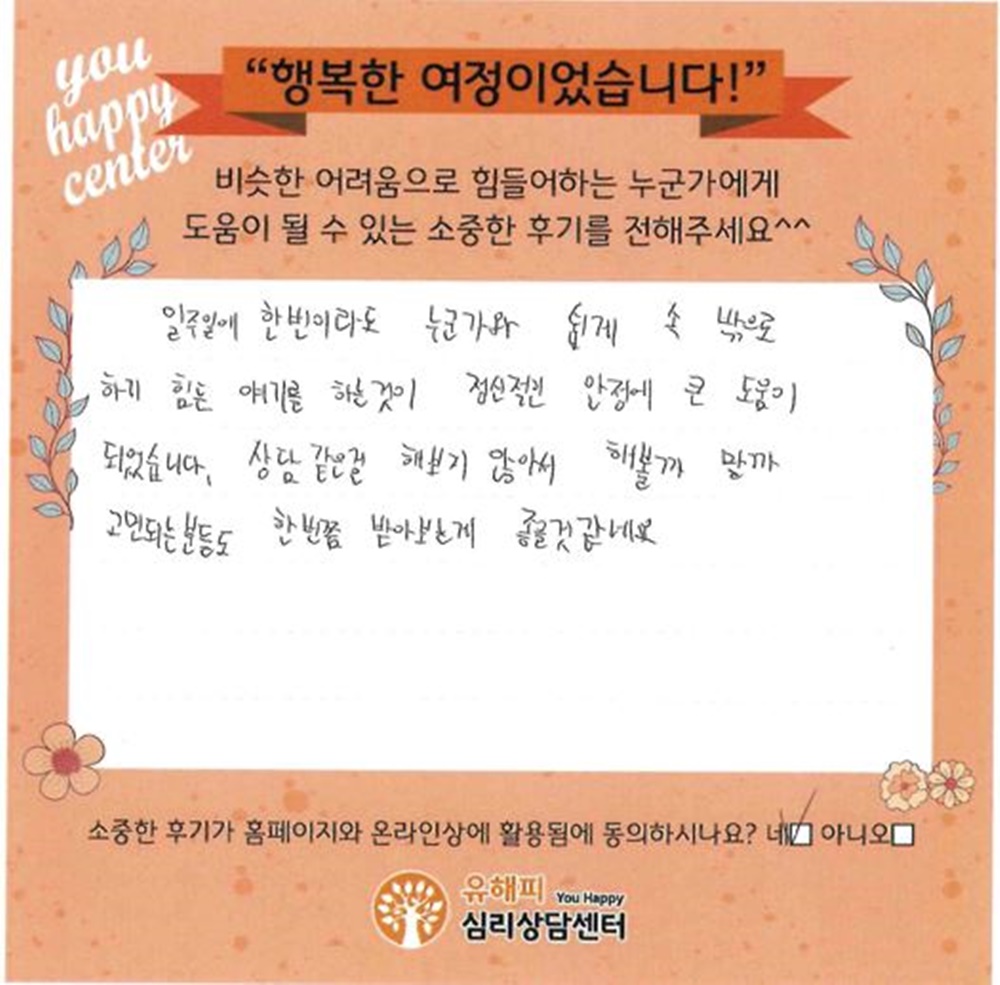 you
happy
center
“행복한 여정이었습니다!”
비슷한 어려움으로 힘들어하는 누군가에게
도움이 될 수 있는 소중한 후기를 전해주세요^^
일주일에 한번이라도 누군가와 쉽게 속 밖으로
하기 힘든 얘기를 하는것이 정신적인 안정에 큰 도움이
되었습니다. 상담 같은걸 해보지 않아서 해볼까 말까
고민되는분들도 한번쯤 받아보는게 좋을것같네요
소중한 후기가 홈페이지와 온라인상에 활용됨에 동의하시나요? 네 아니오
유해피 You Happy
심리상담센터